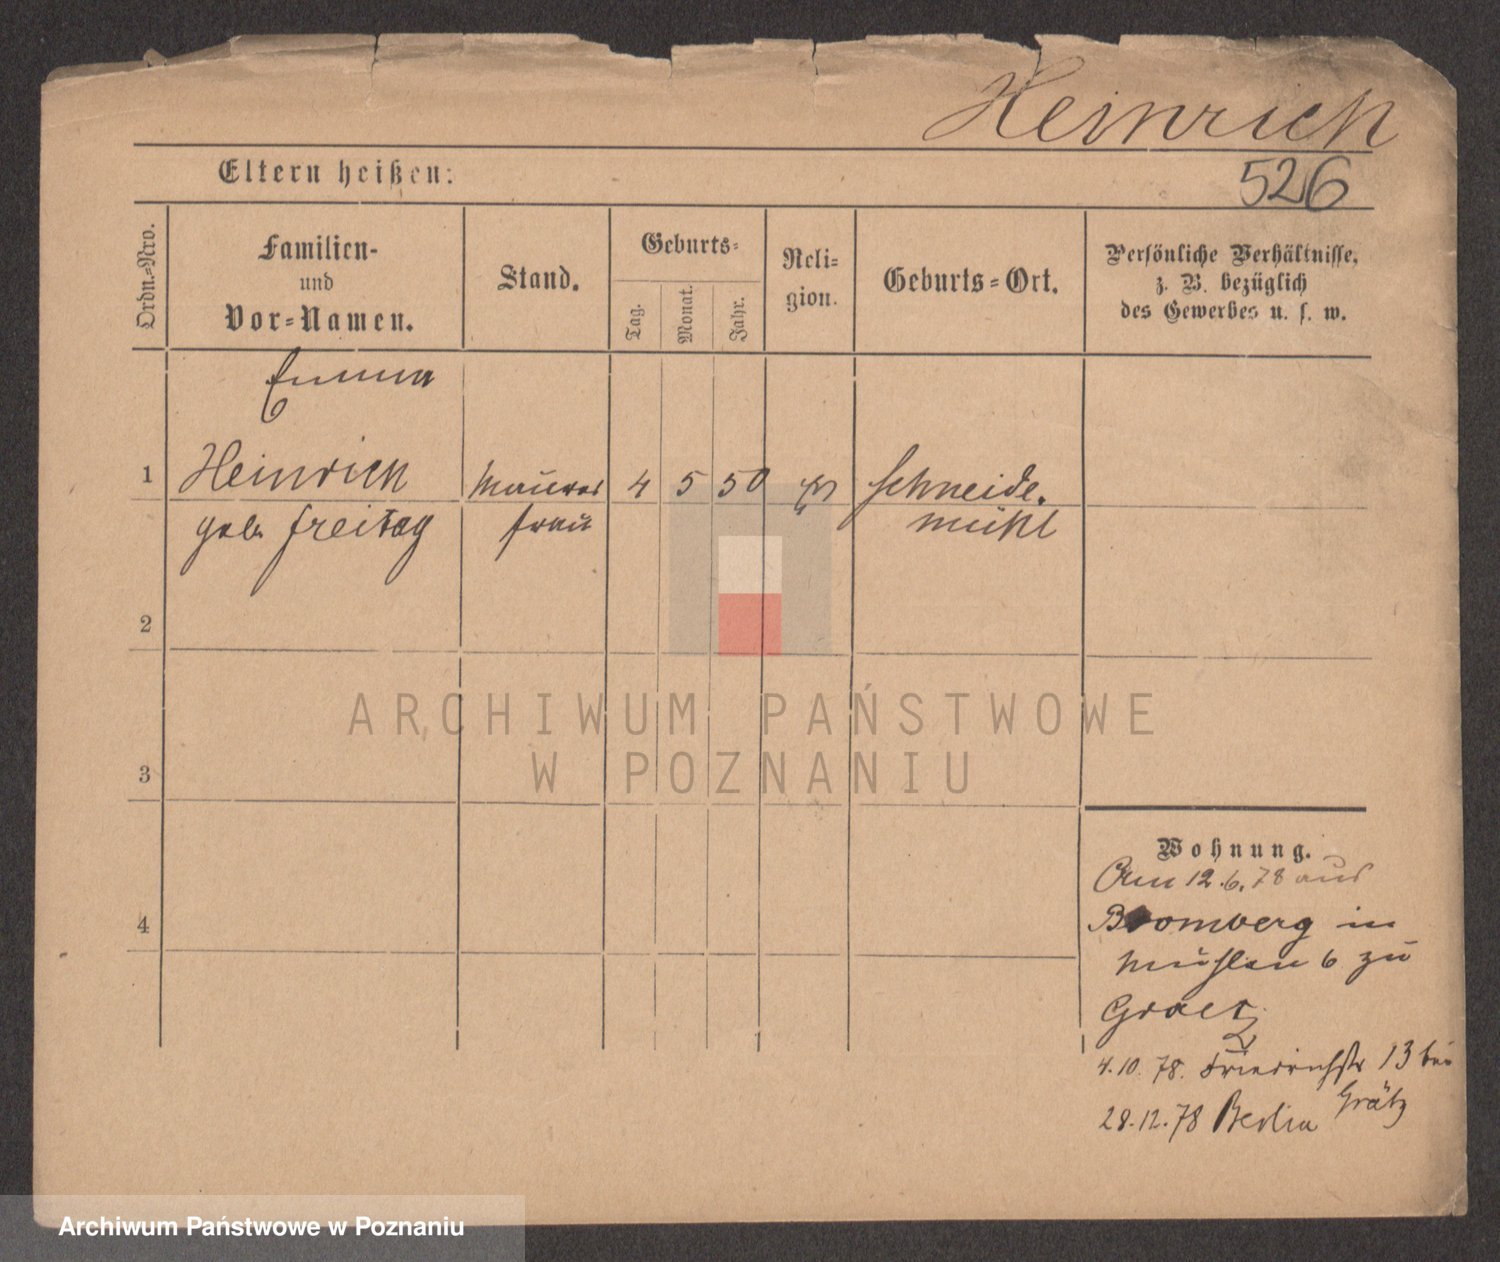 Heinrich
Eltern heißen:
526
Ordn.=Nro.
Familien-
und
Vor=Namen.
Stand.
Geburts=
Tag.
Monat.
Jahr.
Reli=
gion.
Geburts=Ort.
Persönliche Verhältnisse,
z. B. bezüglich
des Gewerbes u. s. w.
Emma
1 Heinrich Maurer 4 5 50 Schneide.
geb. Freitag frau mühl
2
3
4
ARCHIWUM PAŃSTWOWE
W POZNANIU
Wohnung.
Am 12.6.78 aus
Bromberg in
Mühlen 6 zu
Graetz
4.10.78. Friedrichstr 13 bei
Grätz
28.12.78 Berlin
Archiwum Państwowe w Poznaniu